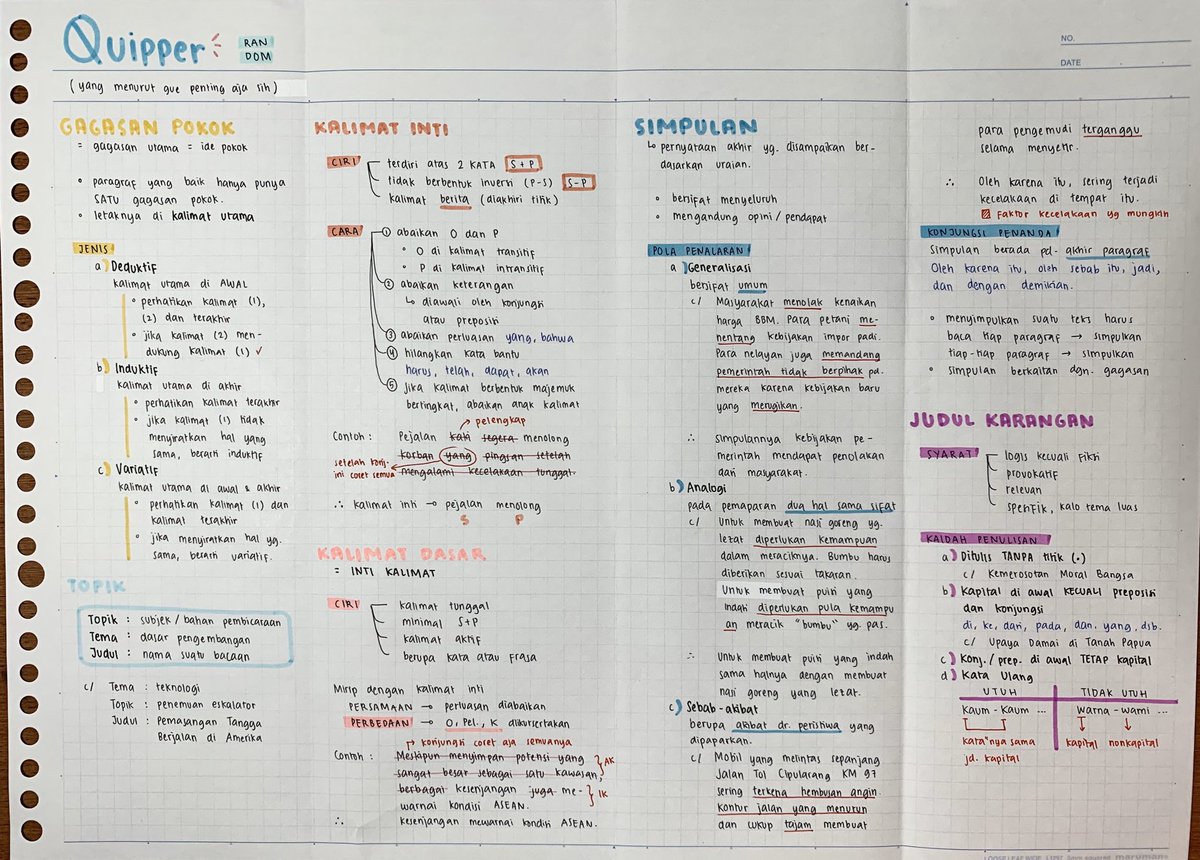 Quipper
RAN
DOM
NO.
DATE
(yang menurut gue penting aja sih)
GAGASAN POKOK
= gagasan utama = ide pokok
• paragraf yang baik hanya punya
SATU gagasan pokok.
• letaknya di kalimat utama
JENIS
a) Deduktif
kalimat utama di AWAL
• perhatikan kalimat (1),
(2) dan terakhir
• jika kalimat (2) men-
dukung kalimat (1) ✓
b) Induktif
kalimat utama di akhir
• perhatikan kalimat terakhir
• jika kalimat (1) tidak
menyiratkan hal yang
sama, berarti induktif
c) Variatif
kalimat utama di awal & akhir
• perhatikan kalimat (1) dan
kalimat terakhir
• jika menyiratkan hal yg.
sama, berarti variatif.
TOPIK
Topik : subjek / bahan pembicaraan
Tema : dasar pengembangan
Judul : nama suatu bacaan
c/ Tema : teknologi
Topik : penemuan eskalator
Judul : Pemasangan Tangga
Berjalan di Amerika
KALIMAT INTI
CIRI
terdiri atas 2 KATA S+P
tidak berbentuk inversi (P-S) S-P
kalimat berita (diakhiri titik)
CARA
① abaikan O dan P
• O di kalimat transitif
• P di kalimat intransitif
② abaikan keterangan
↳ diawali oleh konjungsi
atau preposisi
③ abaikan perluasan yang, bahwa
④ hilangkan kata bantu
harus, telah, dapat, akan
⑤ jika kalimat berbentuk majemuk
bertingkat, abaikan anak kalimat
→ pelengkap
Contoh : Pejalan kaki segera menolong
korban yang pingsan setelah
mengalami kecelakaan tunggal.
setelah konj.
ini coret semua
∴ kalimat inti → pejalan menolong
S P
KALIMAT DASAR
= INTI KALIMAT
CIRI
kalimat tunggal
minimal S+P
kalimat aktif
berupa kata atau frasa
Mirip dengan kalimat inti
PERSAMAAN → perluasan diabaikan
PERBEDAAN → O, Pel., K diikutsertakan
→ konjungsi coret aja semuanya
Contoh : Meskipun menyimpan potensi yang
sangat besar sebagai satu kawasan,
AK
berbagai kesenjangan juga me-
warnai kondisi ASEAN.
IK
∴ kesenjangan mewarnai kondisi ASEAN.
SIMPULAN
↳ pernyataan akhir yg. disampaikan ber-
dasarkan uraian.
• bersifat menyeluruh
• mengandung opini / pendapat
POLA PENALARAN
a) Generalisasi
bersifat umum
c/ Masyarakat menolak kenaikan
harga BBM. Para petani me-
nentang kebijakan impor padi.
Para nelayan juga memandang
pemerintah tidak berpihak pd.
mereka karena kebijakan baru
yang merugikan.
∴ simpulannya kebijakan pe-
merintah mendapat penolakan
dari masyarakat.
b) Analogi
pada pemaparan dua hal sama sifat
c/ Untuk membuat nasi goreng yg.
lezat diperlukan kemampuan
dalam meraciknya. Bumbu harus
diberikan sesuai takaran.
Untuk membuat puisi yang
indah diperlukan pula kemampu
an meracik "bumbu" yg. pas.
∴ Untuk membuat puisi yang indah
sama halnya dengan membuat
nasi goreng yang lezat.
c) Sebab-akibat
berupa akibat dr. peristiwa yang
dipaparkan.
c/ Mobil yang melintas sepanjang
Jalan Tol Cipularang KM 97
sering terkena hembusan angin.
Kontur jalan yang menurun
dan cukup tajam membuat
para pengemudi terganggu
selama menyetir.
∴ Oleh karena itu, sering terjadi
kecelakaan di tempat itu.
faktor kecelakaan yg mungkin
KONJUNGSI PENANDA
Simpulan berada pd. akhir paragraf
Oleh karena itu, oleh sebab itu, jadi,
dan dengan demikian.
• menyimpulkan suatu teks harus
baca tiap paragraf → simpulkan
tiap-tiap paragraf → simpulkan
• simpulan berkaitan dgn. gagasan
JUDUL KARANGAN
SYARAT
logis kecuali fiksi
provokatif
relevan
spesifik, kalo tema luas
KAIDAH PENULISAN
a) Ditulis TANPA titik (.)
c/ Kemerosotan Moral Bangsa
b) Kapital di awal KECUALI preposisi
dan konjungsi
di, ke, dari, pada, dan, yang, dsb.
c/ Upaya Damai di Tanah Papua
c) Konj. / prep. di awal TETAP kapital
d) Kata Ulang
UTUH TIDAK UTUH
Kaum - Kaum ... Warna - warni ...
kata"nya sama
jd. kapital
kapital nonkapital